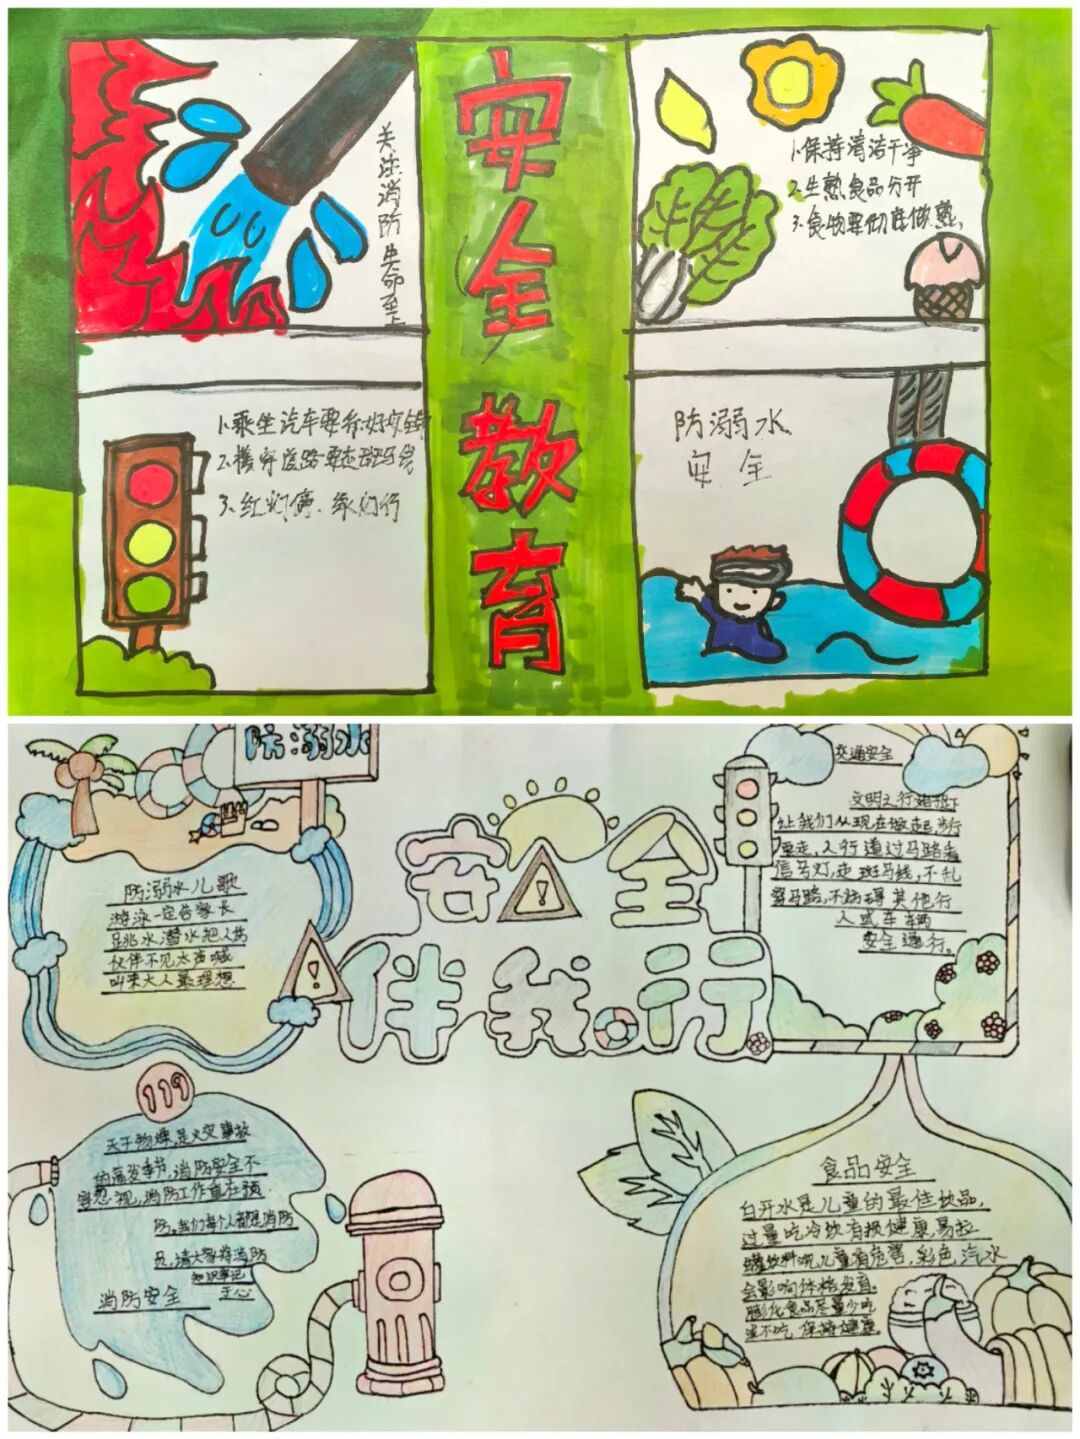 关注消防生命至上
安全教育
1.保持清洁干净
2.生熟食品分开
3.食物要彻底做熟
1.乘坐汽车要系好安全
2.横穿道路要走斑马线
3.红灯停、绿灯行
防溺水
安全
防溺水
防溺水儿歌
游泳一定告家长
跳水潜水把人伤
伙伴不见大声喊
叫来大人最理想
安全
伴我行
交通安全
文明之行
让我们从现在做起,步行
要走,人行道过马路看
信号灯,走斑马线,不乱
穿马路,不妨碍其他行
人或车辆
安全通行。
119
天干物燥,是火灾事故
的高发季节,消防安全不
容忽视,消防工作重在预
防。我们每个人都是消防
员,请大家将消防
知识牢记
于心
消防安全
食品安全
白开水是儿童的最佳饮品,
过量吃冷饮有损健康,易拉
罐饮料呢儿童有危害,彩色汽水
会影响体格发育,
膨化食品尽量少吃
或不吃 保持健康。